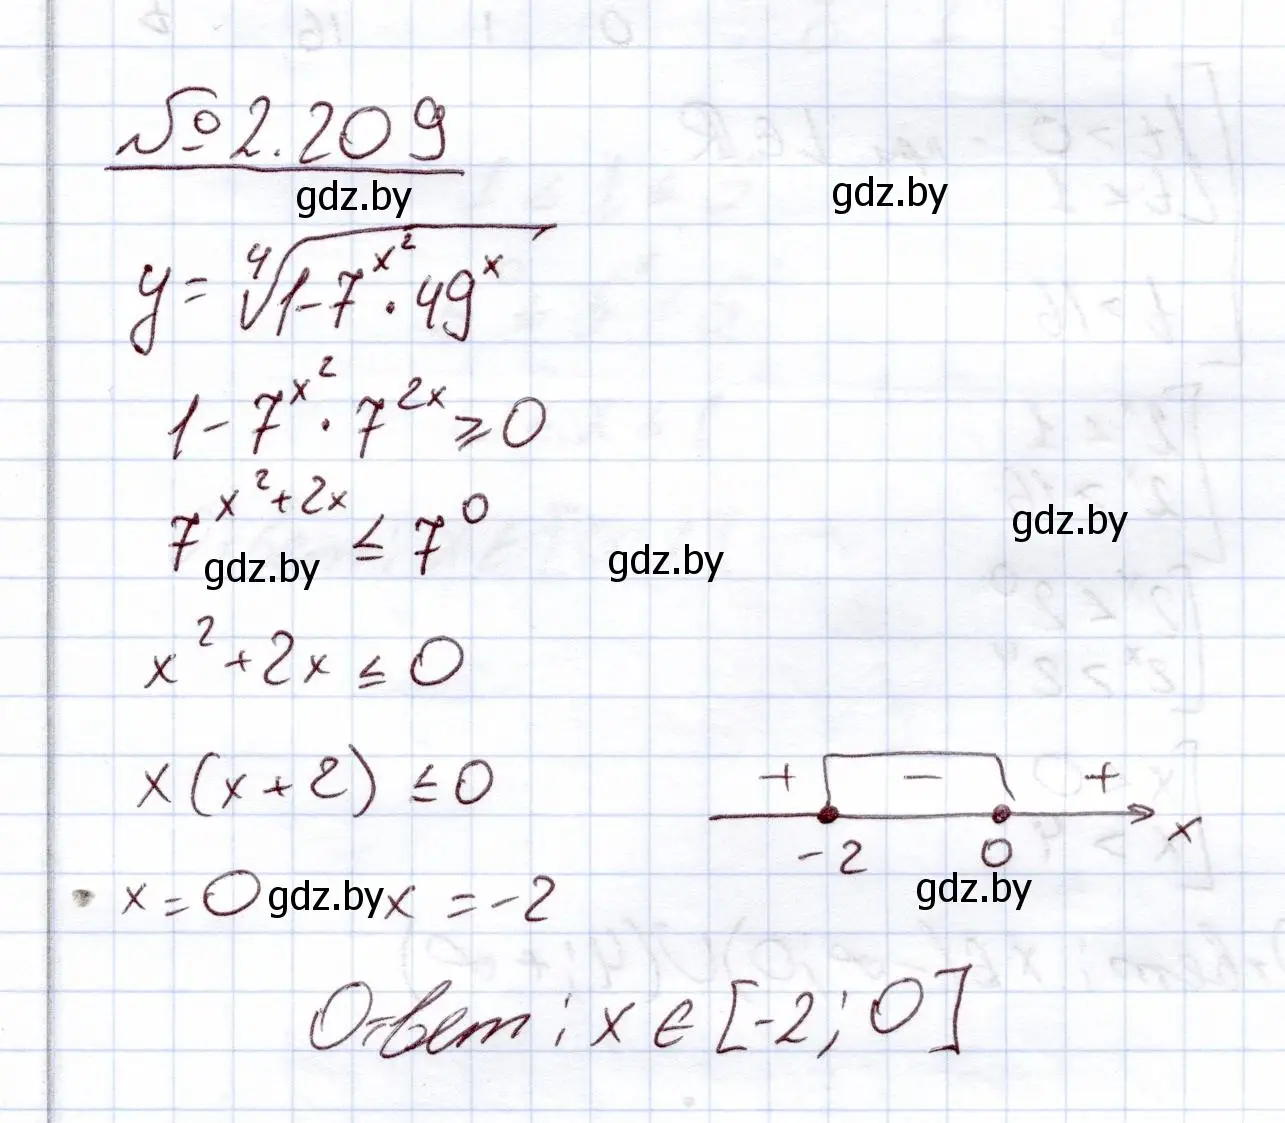 № 2.209
gdz.by
gdz.by
y = ∜(1 - 7^{x^2} · 49^x)
1 - 7^{x^2} · 7^{2x} ≥ 0
7^{x^2 + 2x} ≤ 7^0
gdz.by
gdz.by
gdz.by
x^2 + 2x ≤ 0
x(x + 2) ≤ 0
+ - +
-2 0 x
x = 0 gdz.by x = -2
gdz.by
Ответ: x ∈ [-2; 0]